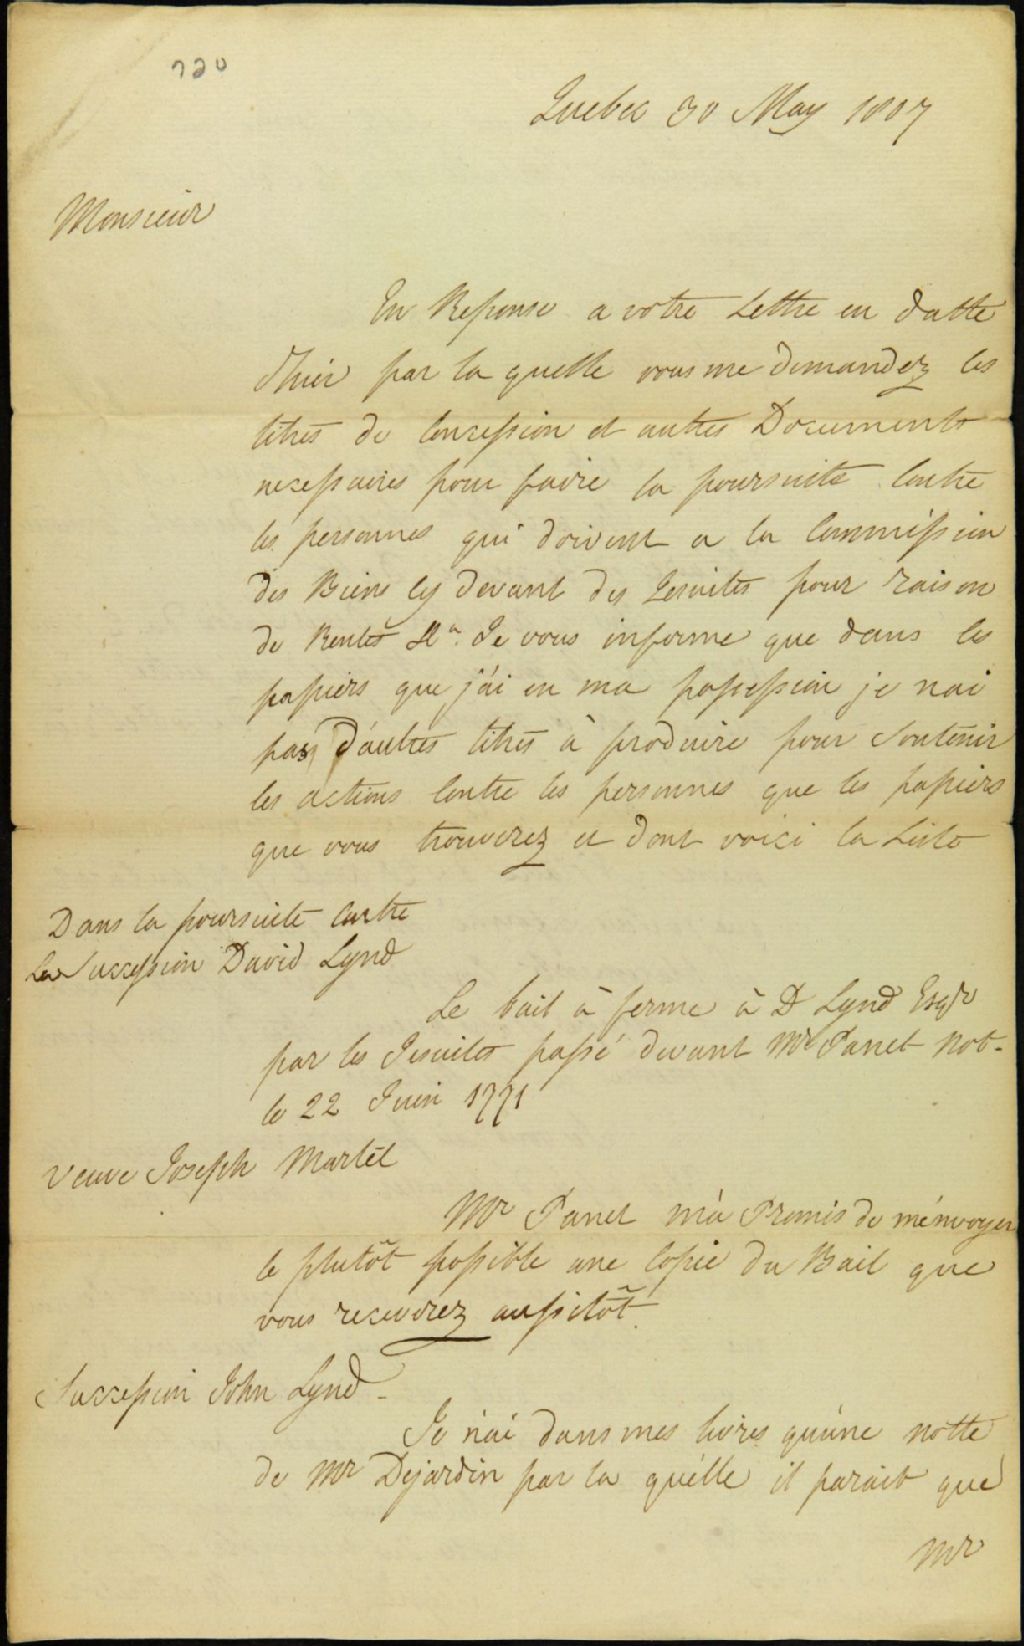 720
Quebec 30 May 1807
Monsieur
En Reponse a votre Lettre en datte
d'hier par la quelle vous me demandez les
titres de Concession et autres Documents
necessaires pour faire la poursuite Contre
les personnes qui doivent a la Commission
des Biens cy devant des Jesuites pour raison
de Rentes &a. Je vous informe que dans les
papiers que j'ai en ma possession je nai
pas d'autres titres à produire pour Soutenir
les actions Contre les personnes que les papiers
que vous trouverez et dont voici la Liste
Dans la poursuite Contre
La Succession David Lynd
Le bail à ferme à D Lynd Esqr
par les Jesuites passé devant Mr Panet Not-
le 22 Juin 1771
Veuve Joseph Martel
Mr Panet m'a Promis de m'énvoyer
le plutôt possible une Copie du Bail que
vous receverez aussitôt
Succession John Lynd -
Je n'ai dans mes livres qu'une notte
de Mr Dejardin par la quélle il parait que
Mr